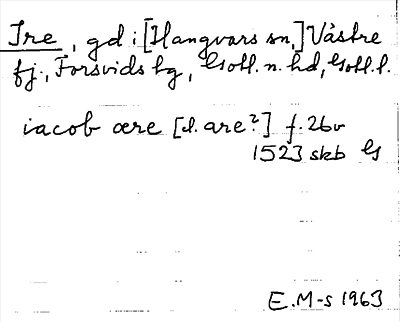 Ire, gd i [Hangvars sn,] Västre
fj., Forsvids tg, Gotl. n. hd, Gotl. l.
iacob ære [l. are?] f. 26v
1523 skb G
E.M-s 1963